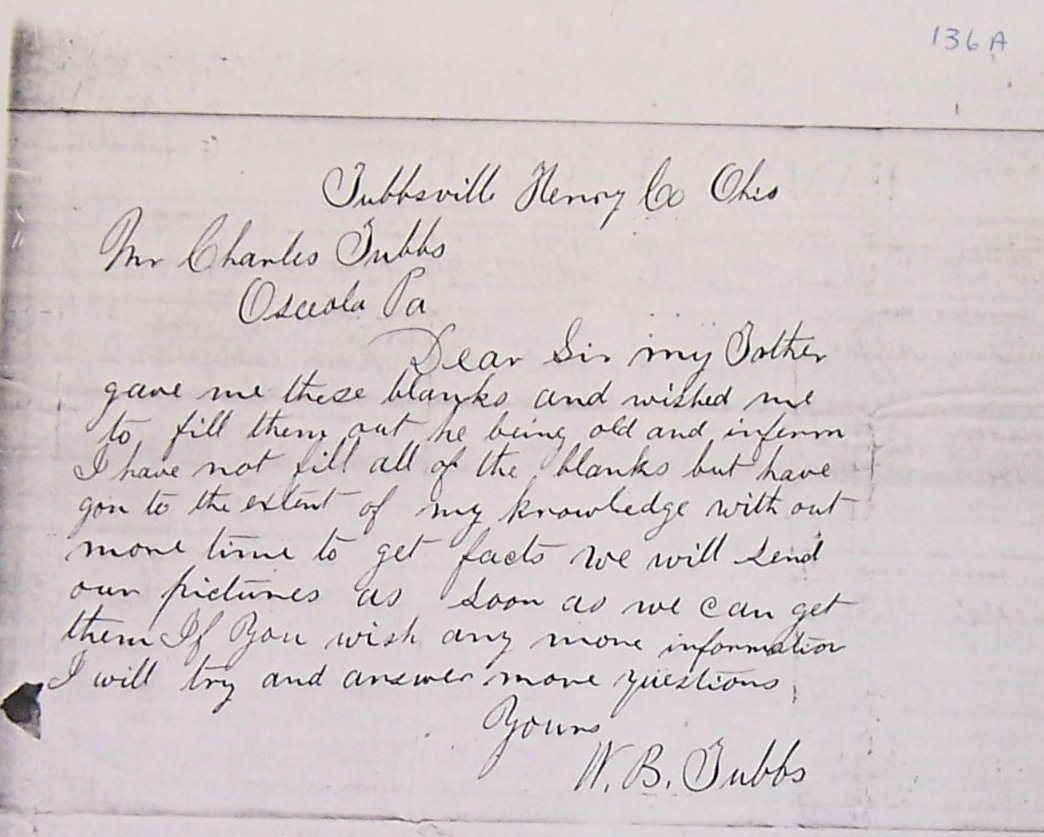 136A
Tubbsville Henry Co Ohio
Mr Charles Tubbs
Osceola Pa
Dear Sir my Father
gave me these blanks and wished me
to fill them out he being old and inferm
I have not fill all of the blanks but have
gon to the extent of my knowledge with out
more time to get facts we will send
our pictures as soon as we can get
them If You wish any more information
I will try and answer more questions
Yours
W. B. Tubbs